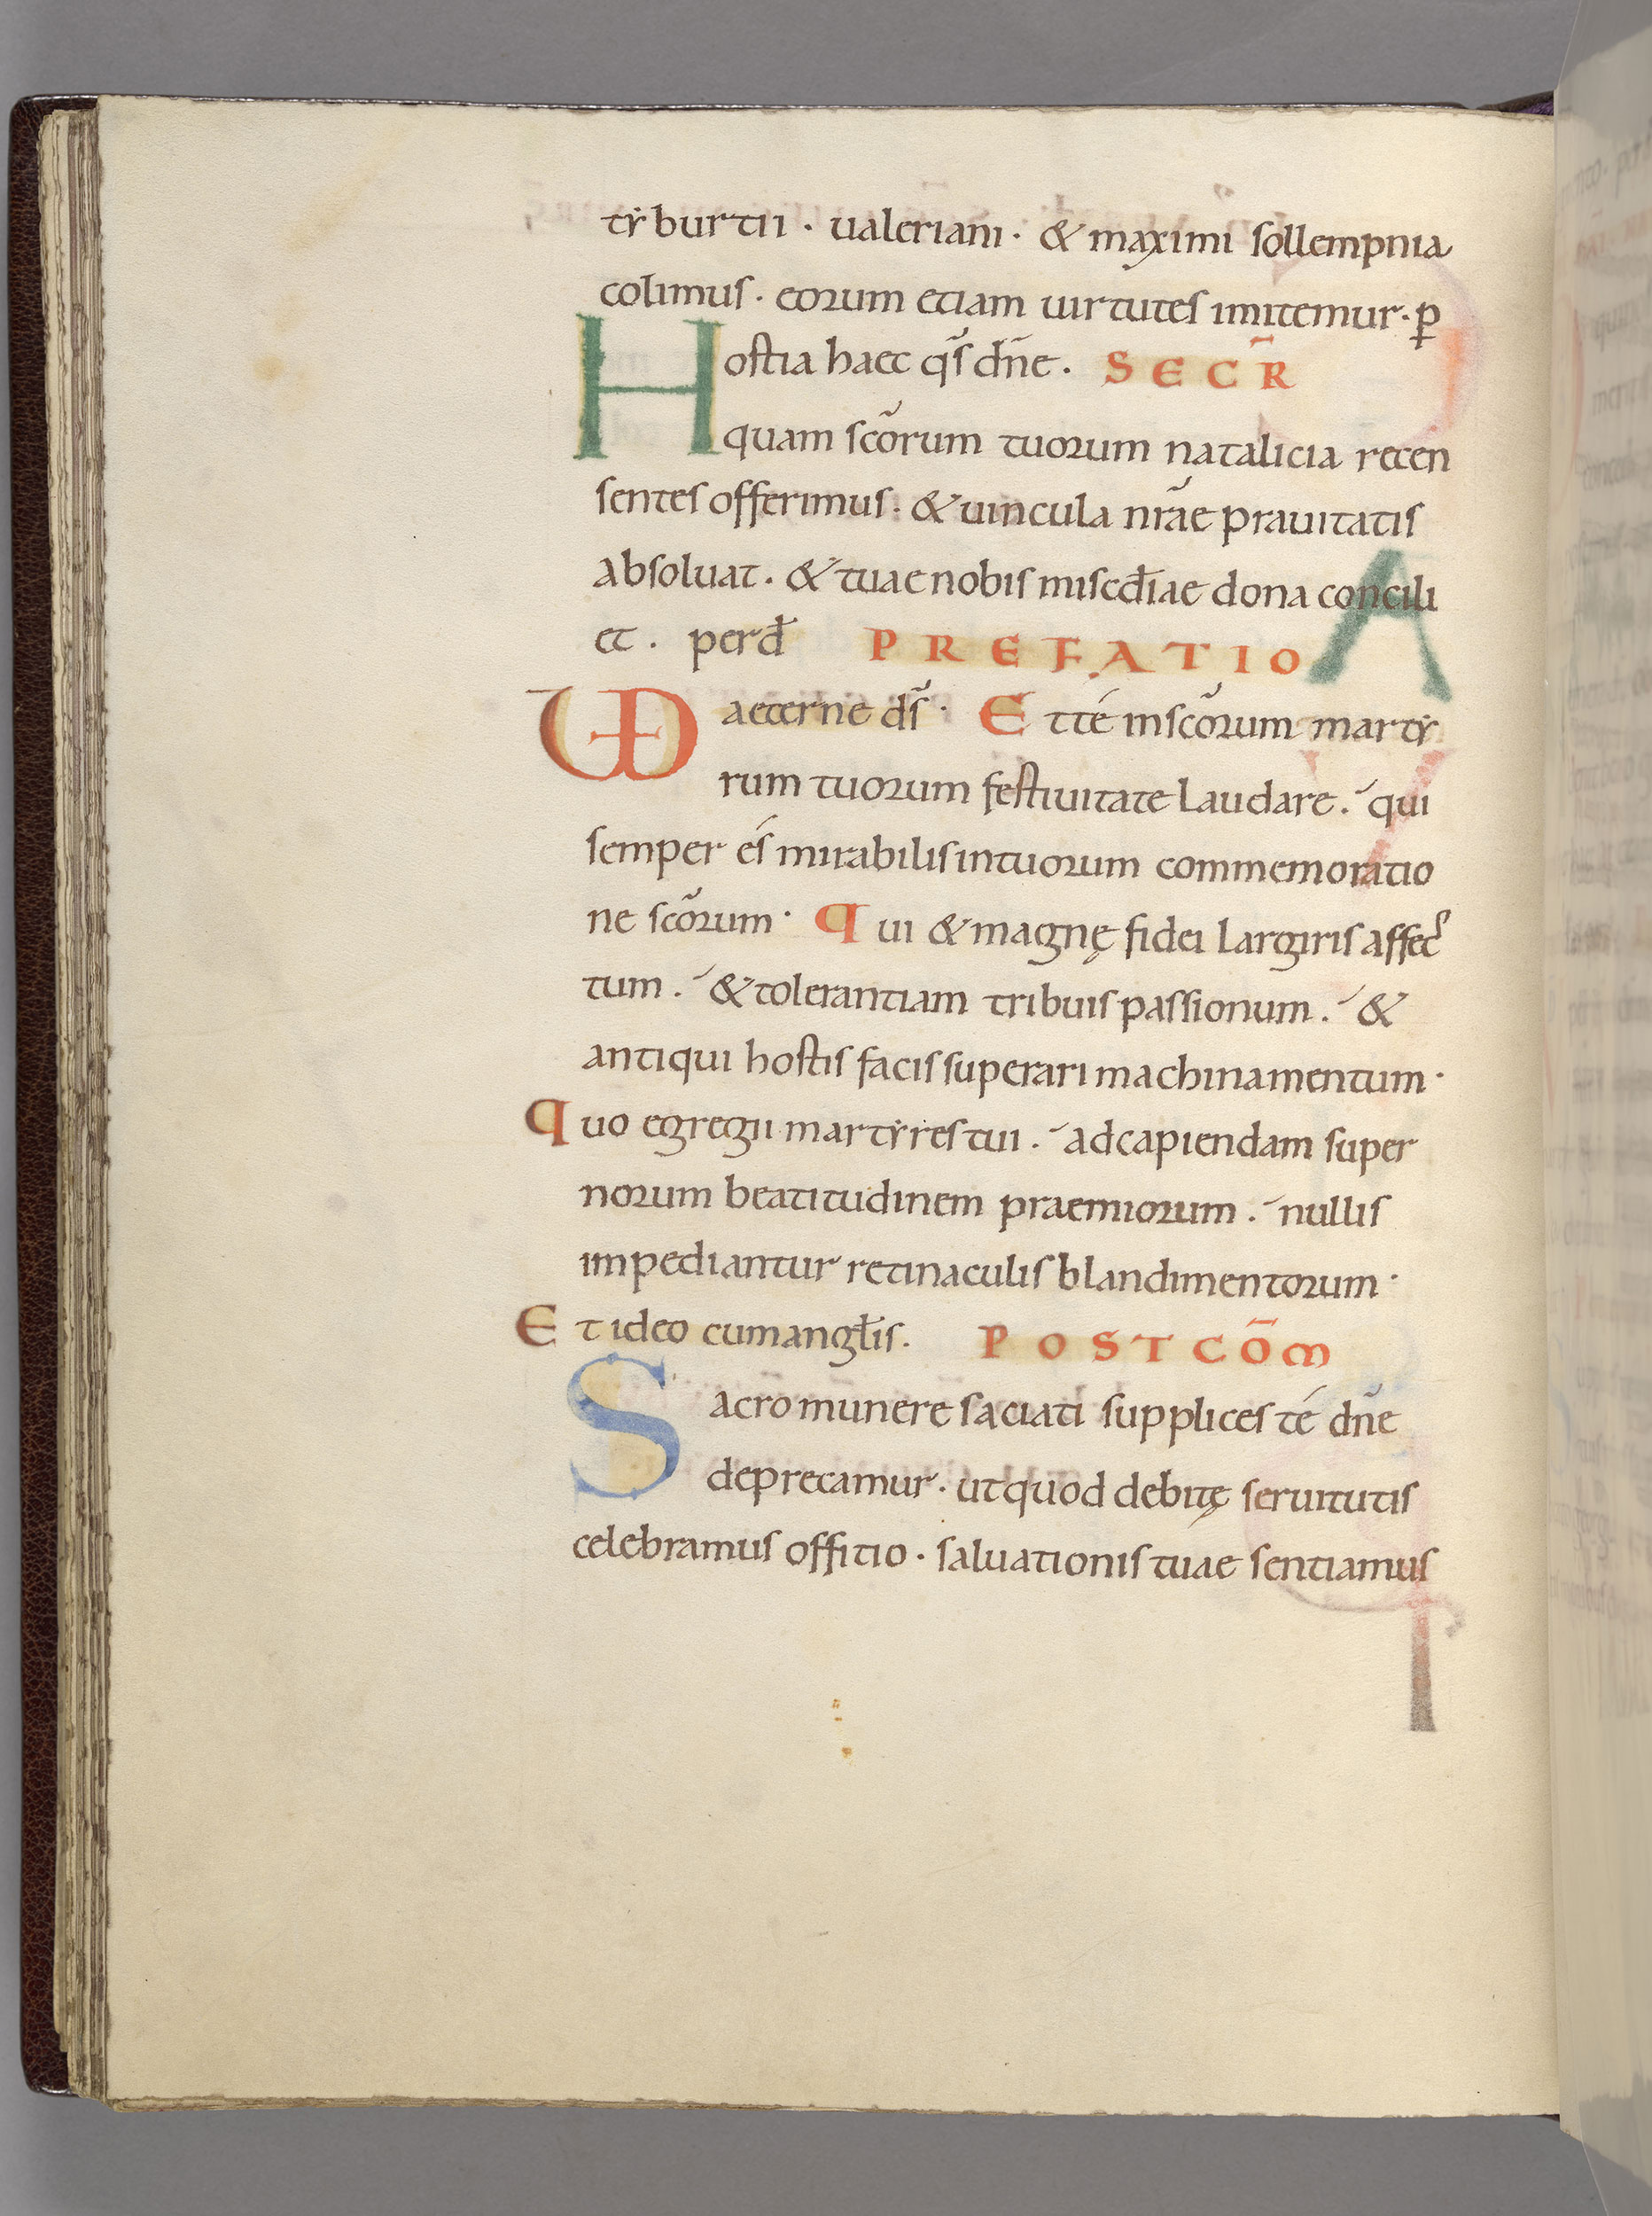 tẏburtii · ualeriani · & maximi sollempnia
colimus · eorum etiam uirtutes imitemur · ꝑ
Hostia haec qs̃ dñe . SECR̃
quam scõrum tuorum natalicia recen
sentes offerimus · & uincula nrãe prauitatis
absoluat . & tuae nobis misc̄diae dona concili
et . per d̄ PREFATIO
VD aeterne ds̃ · Et té in scõrum martẏ
rum tuorum festiuitate laudare . qui
semper és mirabilis in tuorum commemoratio
ne scõrum · Qui & magnę fidei largiris affec
tum . & tolerantiam tribuis passionum . &
antiqui hostis facis superari machinamentum ·
Quo egregii martẏres tui . ad capiendam super
norum beatitudinem praemiorum . nullis
impediantur retinaculis blandimentorum ·
Et ideo cum angłis . POST CŌM
Sacro munere saciati supplices té dñe
deprecamur · ut quod debitę seruitutis
celebramus offitio · saluationis tuae sentiamus